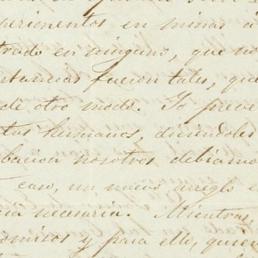 sperientos en minas a
trado en ninguno, que no
stancias fueron tales, que
de otro modo. Yo preve
tus hermanos, diciendoles
nosotros debiamos
caso, un nuevo arreglo e
ria necesaria. Mientras,
omitos y para ello, quie